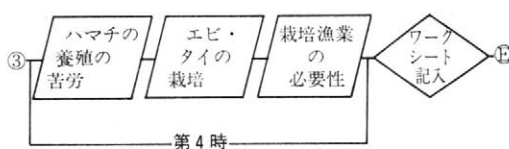 ③
ハマチの
養殖の
苦労
エビ・
タイの
栽培
栽培漁業
の
必要性
ワーク
シート
記入
Ⓔ
第4時